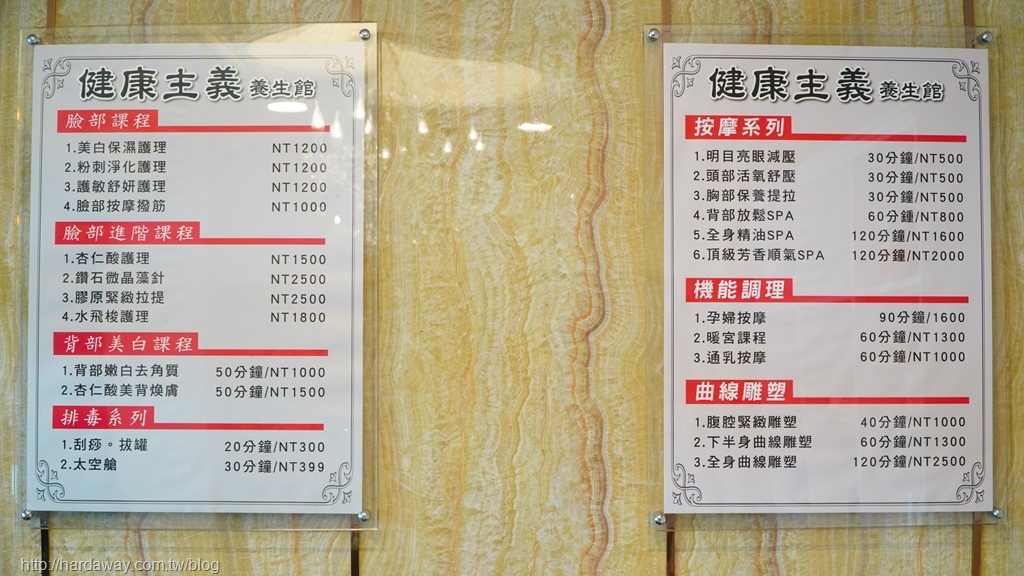 健康主義 養生館
臉部課程
1.美白保濕護理 NT1200
2.粉刺淨化護理 NT1200
3.護敏舒妍護理 NT1200
4.臉部按摩撥筋 NT1000
臉部進階課程
1.杏仁酸護理 NT1500
2.鑽石微晶藻針 NT2500
3.膠原緊緻拉提 NT2500
4.水飛梭護理 NT1800
背部美白課程
1.背部嫩白去角質 50分鐘/NT1000
2.杏仁酸美背煥膚 50分鐘/NT1500
排毒系列
1.刮痧。拔罐 20分鐘/NT300
2.太空艙 30分鐘/NT399
健康主義 養生館
按摩系列
1.明目亮眼減壓 30分鐘/NT500
2.頭部活氧舒壓 30分鐘/NT500
3.胸部保養提拉 30分鐘/NT500
4.背部放鬆SPA 60分鍾/NT800
5.全身精油SPA 120分鐘/NT1600
6.頂級芳香順氣SPA 120分鐘/NT2000
機能調理
1.孕婦按摩 90分鐘/1600
2.暖宮課程 60分鐘/NT1300
3.通乳按摩 60分鐘/NT1000
曲線雕塑
1.腹腔緊緻雕塑 40分鐘/NT1000
2.下半身曲線雕塑 60分鐘/NT1300
3.全身曲線雕塑 120分鐘/NT2500
http://hardaway.com.tw/blog